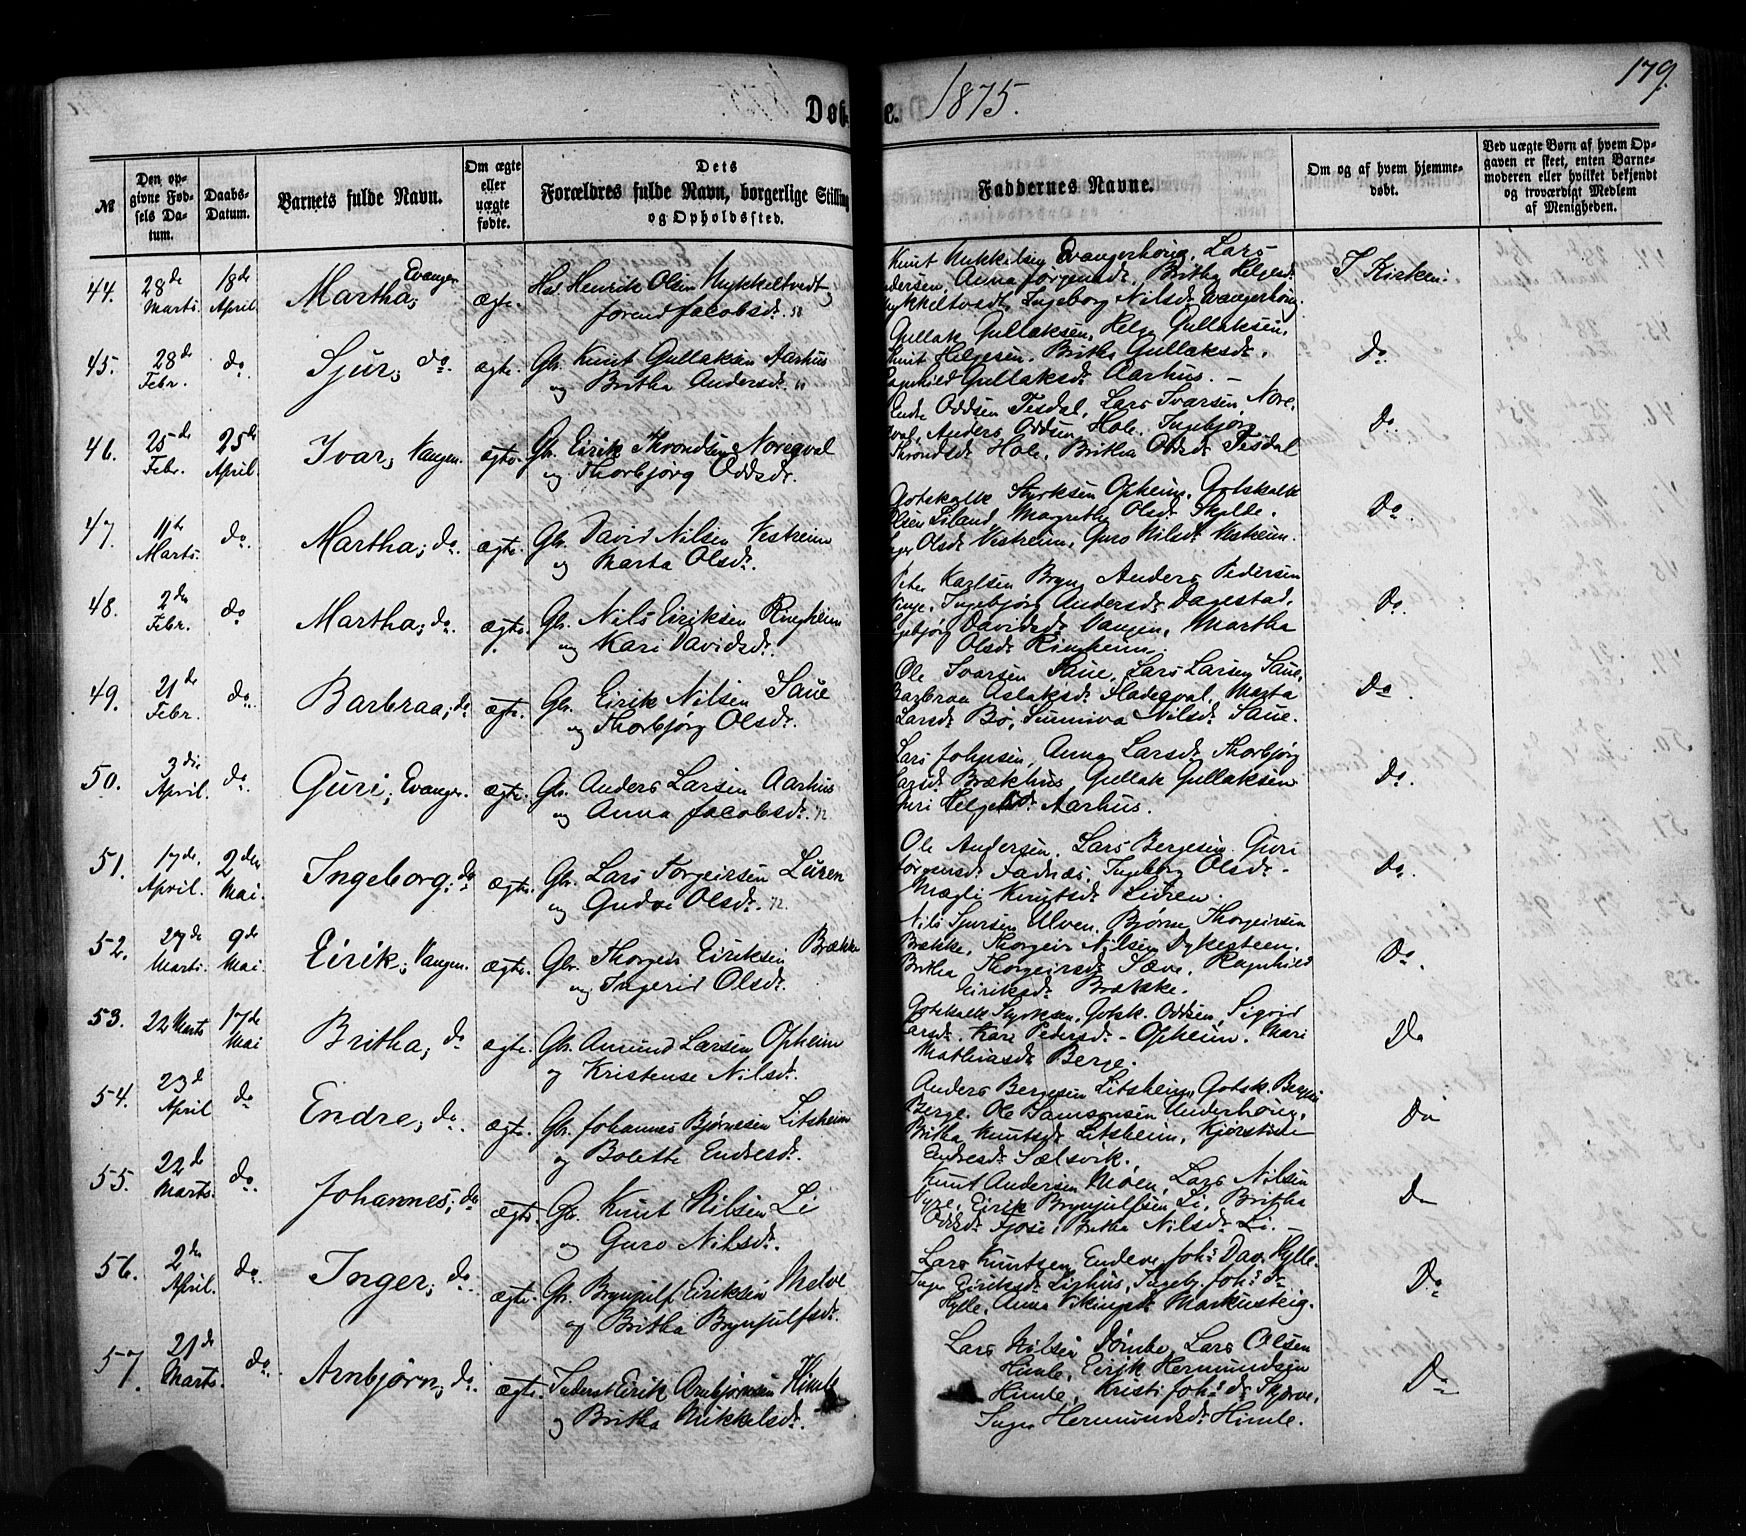 179.
Døb
e. 1875.
№
Den op-
givne Fød-
sels Da-
tum.
Daabs-
Datum.
Barnets fulde Navn.
Om ægte
eller
uægte
fødte.
Dets
Forældres fulde Navn, borgerlige Stilling
og Opholdssted.
Faddernes Navne.
Om og af hvem hjemme-
døbt.
Ved uægte Børn af hvem Op-
gaven er skeet, enten Barne-
moderen eller hvilket bekjendt
og troværdigt Medlem
af Menigheden.
44. 28de Marts. 18de April. Martha, Evanger ægte. Henrik Olsen Mykkeltvedt
Jacobsdr.
Knut Mykkelsen Evangerhøug, Lars
dersen, Anna Jørgensdr. Britha Helgesd.
ykkeltvedt, Ingeborg Nilsdr. Evangerhøug.
I Kirken.
45. 28de Febr. do. Sjur, do. ægte. Gbr. Knut Gullaksen Aarhus
og Britha Andersdr.
Gullak Gullaksen, Helge Gullaksen,
Knut Helgesen, Britha Gullaksdr.
Ragnhild Gullaksdr. Aarhus. —
Do.
46. 25de Febr. 25de April. Ivar, Vangen. ægte. Gbr. Eirik Throndsen Noreqval
og Thorbjørg Oddsdr.
Endre Oddsen Tesdal, Lars Ivarsen, Nore-
qval, Anders Oddsen Hole. Ingebjørg
Throndsdr. Hole, Britha Oddsdr. Tesdal
Do.
47. 11te Marts. do. Martha, do. ægte. Gbr. David Nilsen Vestreim
og Marta Olsdr.
Gotskalk Styrksen Opheim, Gotskalk
Olsen Liland, Magretha Olsdr. Skylde.
Inger Olsdr. Vestreim, Guro Nilsdr. Vestreim.
Do.
48. 2den Febr. do Martha, do. ægte. Gbr. Nils Eiriksen Ringheim
og Kari Davidsdr.
Peter Karlsen Bryn, Anders Pedersen
Kinje, Ingebjørg Andersdr. Dagestad.
Ingebjørg Davidsdr. Vangen, Martha
Olsdr. Ringheim.
Do.
49. 21de Febr. do. Barbraa, do ægte. Gbr. Eirik Nilsen Saue
og Thorbjørg Olsdr.
Ole Ivarsen Saue, Lars Larsen Saue,
Barbraa Aslaksdr. Fladeqval, Marta
Larsdr. Bø, Sunniva Nilsdr. Saue.
Do
50. 3die April. do. Guri, Evanger. ægte. Gbr. Anders Larsen Aarhus
og Anna Jacobsdr. 72
Lars Johnsen, Anna Larsdr. Thorbjørg
Larsdr. Brækhus, Gullak Gullaksen
Guri Helgesdr. Aarhus.
Do.
51. 17de April. 2den Mai. Ingeborg, do ægte. Gbr. Lars Torgeirsen Liiren
og Gudve Olsdr. 72.
Ole Andersen, Lars Bergesen, Guri
Jørgensdr. Fadnæs, Ingeborg Olsdr. —
Mægli Knutsdr. Liiren.
Do.
52. 27de Marts. 9de Mai. Eirik, Vangen. ægte. Gbr. Thorgeir Eiriksen Brække
og Ingerid Olsdr.
Nils Sjursen Ulven, Bjørne Thorgeirsen
Brække, Thorgeir Nilsen Dykesteen.
Britha Thorgeirsdr. Sæve, Ragnhild
Eiriksdr. Brække.
Do.
53. 22 Marts 17de Mai Britha, do ægte. Gbr. Amund Larsen Opheim
og Kristense Nilsdr.
Gotskalk Styrksen, Gotsk. Oddsen, Sigrid
Larsdr. Kari Pedersdr. - Opheim. Mari
Mathiasdr. Berge.
Do
54. 23d April do Endre, do. ægte. Gbr. Johannes Bjørnesen Litsheim
og Bolette Endresdr.
Anders Bergesen Litsheim, Gotsk. Bergesen
Berge. Ole Samsonsen Underhøug,
Britha Knutsdr. Litsheim, Kjørstine
Endresdr. Sælsvik.
Do
55. 22de Marts. do. Johannes, do ægte. Gbr. Knut Nilsen Li
og Guro Nilsdr.
Knut Andersen Møen, Lars Nilsen
Gjøre, Eirik Brynjulfsen Li, Britha
Oddsdr. Fjose, Britha Nilsdr. Li. —
Do
56. 2den April. do. Inger, do. ægte. Gbr. Brynjulf Eiriksen Melve
og Britha Brynjulfsdr.
Lars Knutsen Endeve, Johs Dav. Hylle.
Inger Eiriksdr. Lirhus, Ingeb. Johs dr
Hylle, Anna Vikingsdr. Markusteig.
Do.
57. 21de Marts. do. Arnbjørn, do. ægte. Føderaadsm. Eirik Arnbjørnsen Himle
og Britha Mikkelsdr.
Lars Nilsen Dørnbe, Lars Olsen
Himle, Eirik Hermundsen
Himle, Kristi Johs dr. Skjerve,
Inger Hermundsdr. Himle.
Do